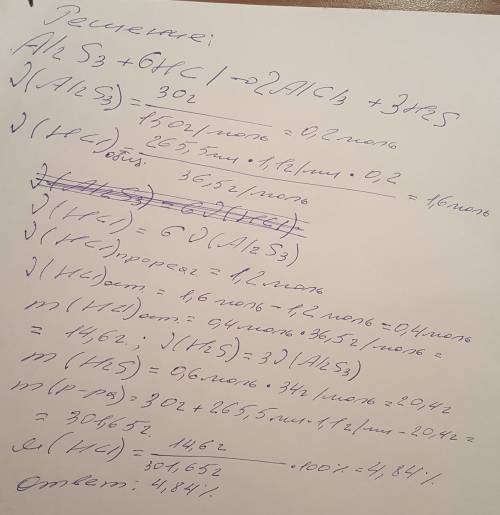 Решение:
Al2S3 + 6HCl → 2AlCl3 + 3H2S
ν(Al2S3) = 30г / 150г/моль = 0,2моль
ν(HCl)общ. = 265,5мл • 1,1г/мл • 0,2 / 36,5г/моль = 1,6моль
ν(Al2S3) = 6ν(HCl)
ν(HCl) = 6ν(Al2S3)
ν(HCl)прореаг = 1,2моль
ν(HCl)ост. = 1,6моль - 1,2моль = 0,4моль
m(HCl)ост. = 0,4моль • 36,5г/моль =
= 14,6г; ν(H2S) = 3ν(Al2S3)
m(H2S) = 0,6моль • 34г/моль = 20,4г
m(р-ра) = 30г + 265,5мл • 1,1г/мл - 20,4г =
= 301,65г
ω(HCl) = 14,6г / 301,65г • 100% = 4,84%
Ответ: 4,84%